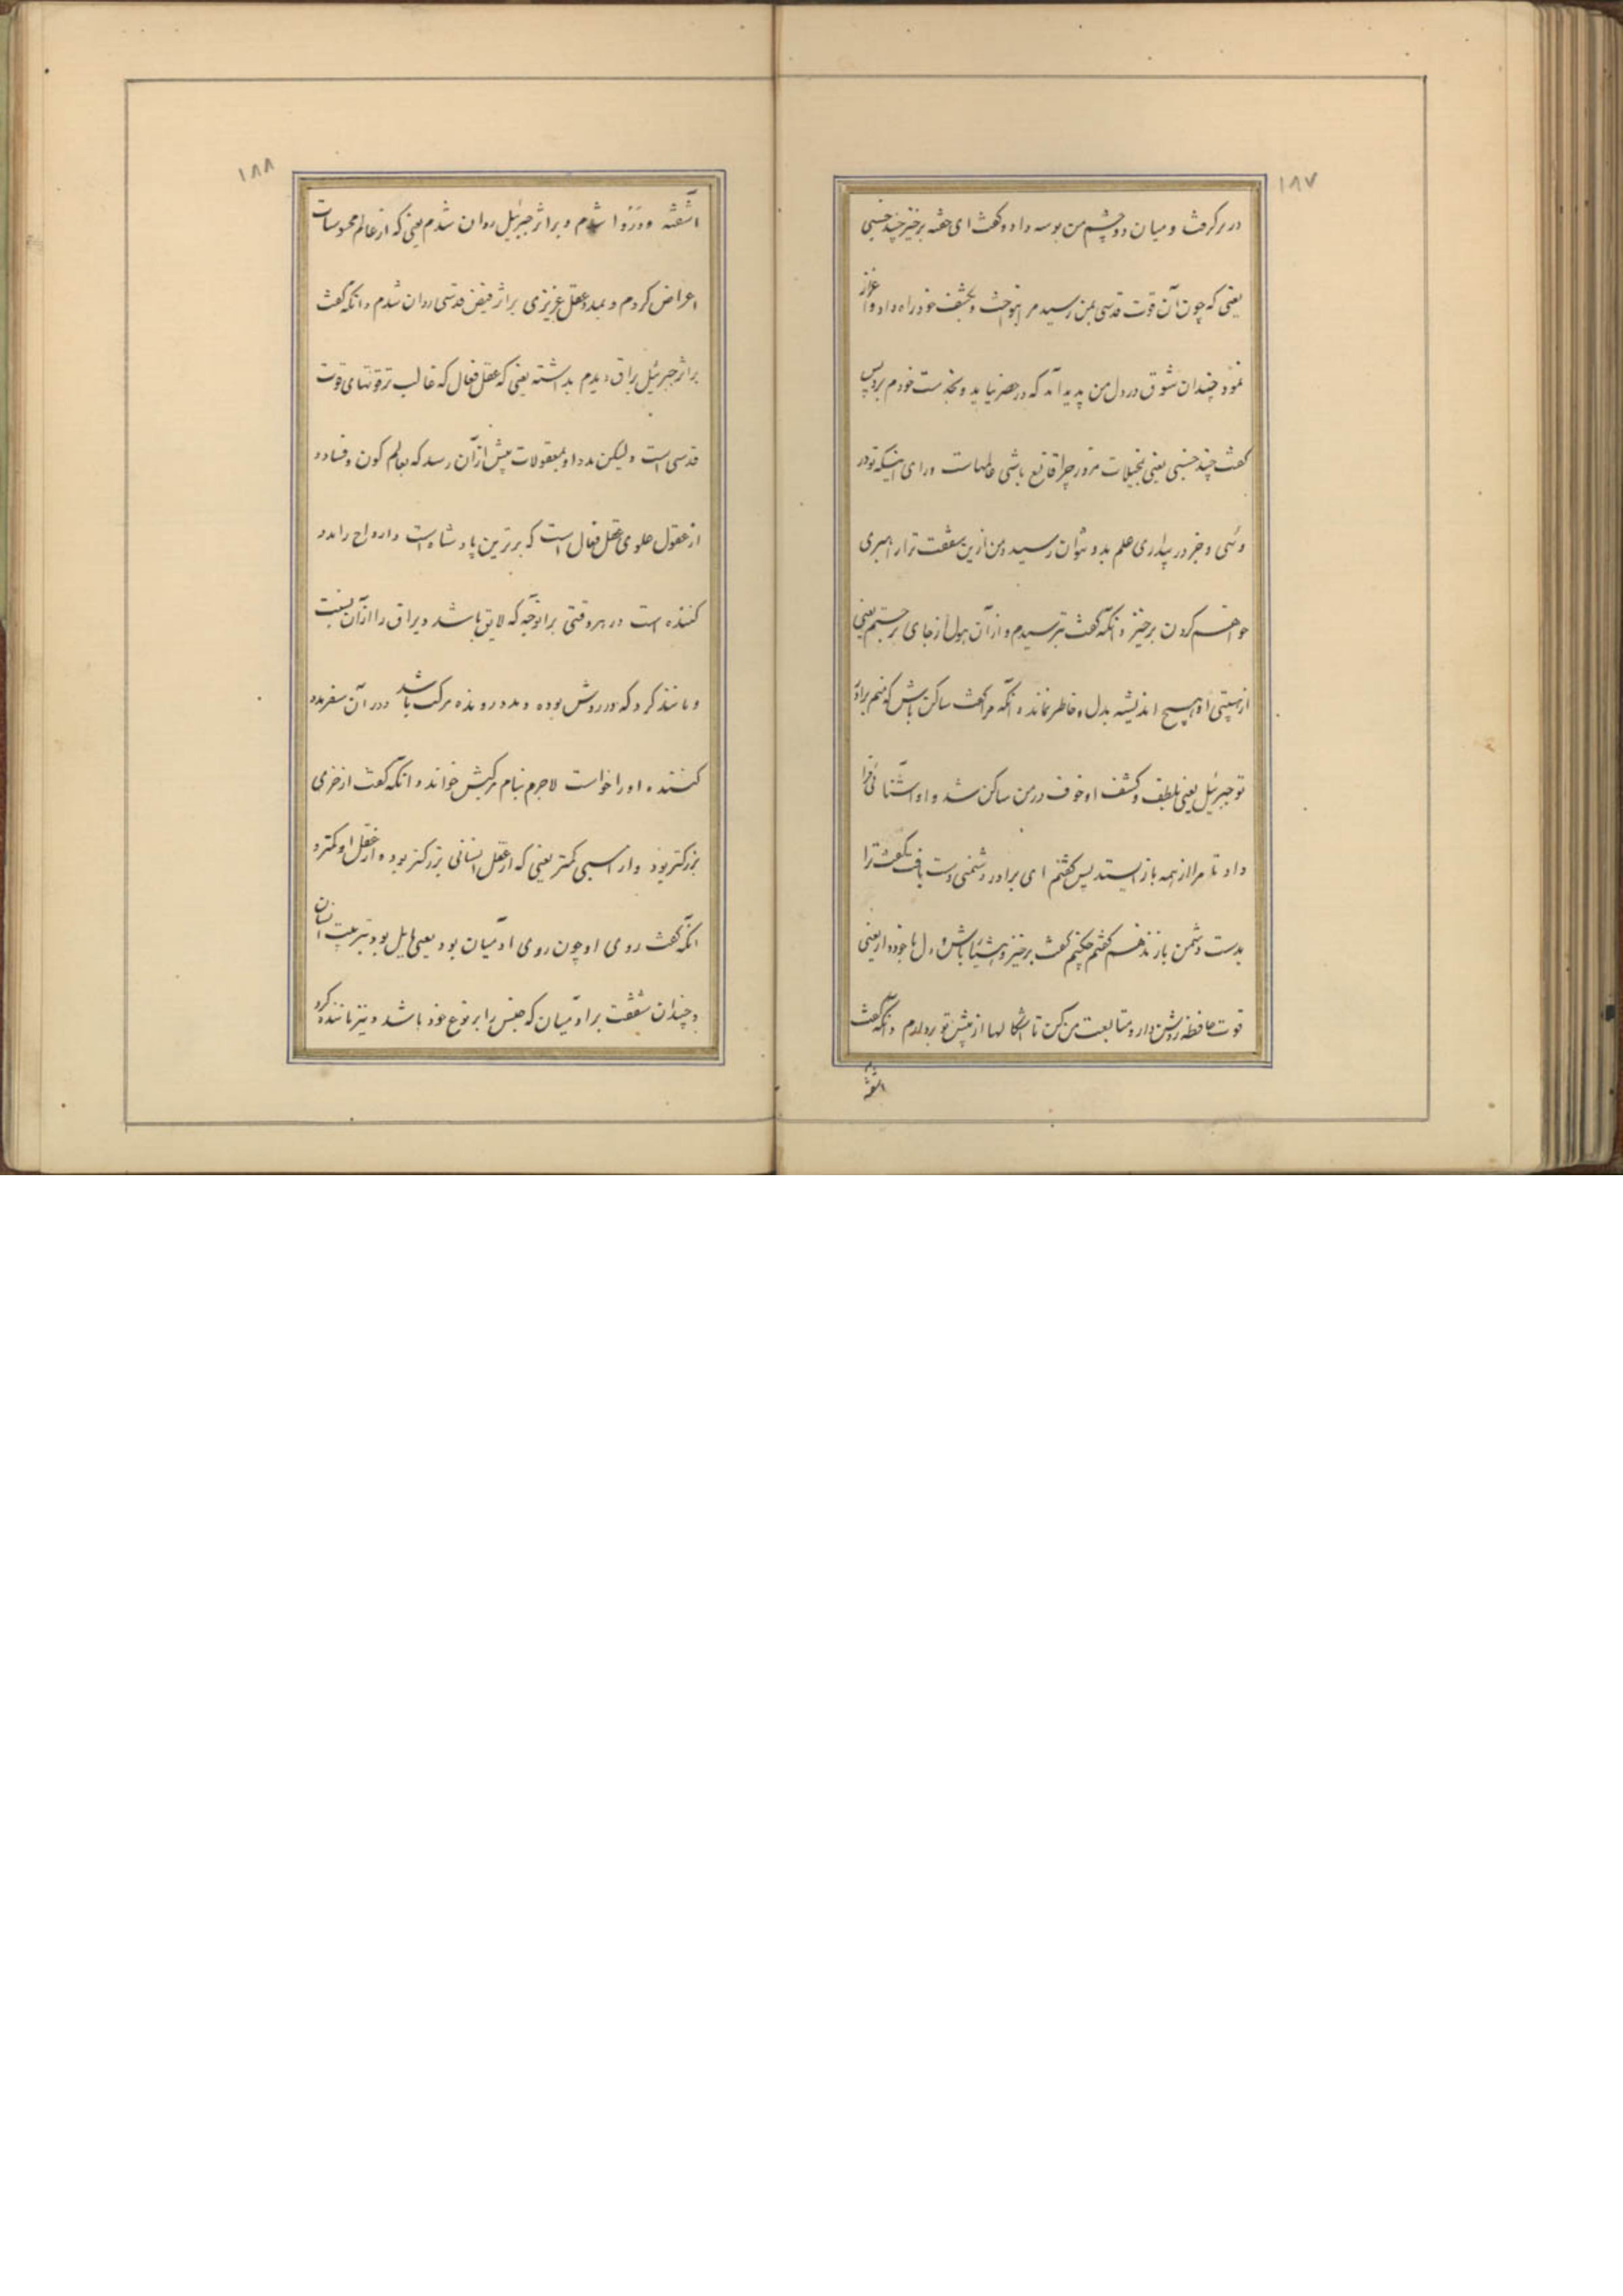 ۱۸۷
در بر گرفت و میان دو چشم من بوسه داد و گفت ای خفته برخیز چند خسبی
یعنی که چون آن قوت قدسی بمن رسید مرا بنواخت و بکشف خود راه داد و اعزاز
نمود چندان شوق در دل من پدید آمد که در حصر نیاید و بخدمت خودم برد پس
گفت چند خسبی یعنی بتخیلات مزور چرا قانع باشی عالمهاست ورای اینکه تو در
وئی و جز در بیداری علم بدو نتوان رسید و من از این شفقت ترا راهبری
خواهم کردن برخیز و آنکه گفت بترسیدم و از آن هول از جای برجستم یعنی
از هیبتی او هیچ اندیشه بدل و خاطر نماند و آنکه مرا گفت ساکن باش که منم برادر
تو جبرئیل یعنی بلطف و کشف او خوف در من ساکن شد و او آشنائی فرا
داد تا مرا از بیم باز ایستد پس گفتم ای برادر دشمنی دست یافت گفت ترا
بدست دشمن باز ندهم گفتم چکنم گفت برخیز و هشیار باش و دل با خود دار یعنی
قوت حافظه روشن دار و متابعت من کن تا اشکالها از پیش تو بردارم و آنکه گفت
آشفته
۱۸۸
آشفته و دروا شدم و بر اثر جبرئیل روان شدم یعنی که از عالم محسوسات
اعراض کردم و بمدد عقل غریزی بر اثر فیض قدسی روان شدم و آنکه گفت
بر اثر جبرئیل براق دیدم بداشته یعنی که عقل فعال که غالب تر قوتهای قوت
قدسی است ولیکن مدد او بمعقولات بیش از آن رسد که بعالم کون و فساد و
از عقول علوی عقل فعال است که برترین پادشاه است و ارواح را مدد
کننده است در هر وقتی بر آنچه که لایق باشد و براق را از آن نسبت
و مانند کرد که در روش بوده و مدد رونده مرکب باشد و در آن سفر مدد
کننده او را خواست لاجرم بنام مرکبش خواند و آنکه گفت از خری
بزرگتر بود و از اسبی کمتر یعنی که از عقل انسانی بزرگتر بود و از عقل او کمتر و
آنکه گفت روی او چون روی آدمیان بود یعنی مایل بود بتربیت انسان
و چندان شفقت بر آدمیان که جنس را بر نوع خود باشد و نیز مانند کرد